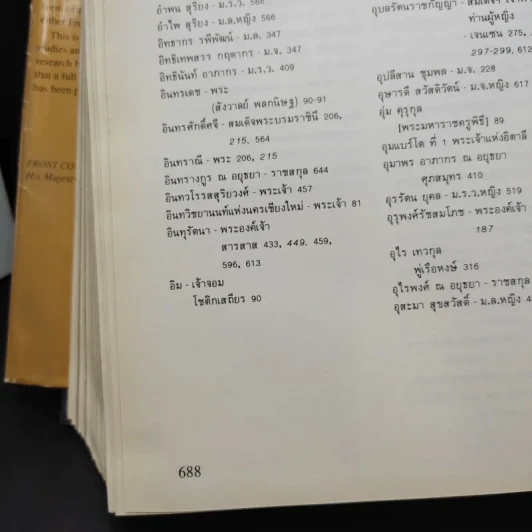 อำพน สุริยง - ม.ร.ว. 566
อำไพ สุริยง - ม.ล.หญิง 566
อิทธากร รพีพัฒน์ - ม.ล. 347
อิทธิเทพสรร กฤดากร - ม.จ. 347
อิทธินันท์ อาภากร - ม.ร.ว. 409
อินทรเดช - พระ
(สังวาลย์ พลกนิษฐ) 90-91
อินทรศักดิ์ศจี - สมเด็จพระบรมราชินี 206,
215, 564
อินทราณี - พระ 206, 215
อินทรางกูร ณ อยุธยา - ราชสกุล 644
อินทวโรรสสุริยวงศ์ - พระเจ้า 457
อินทวิชยานนท์แห่งนครเชียงใหม่ - พระเจ้า 81
อินทุรัตนา - พระองค์เจ้า
สารสาส 433, 449, 459,
596, 613
อิม - เจ้าจอม
โชติกเสถียร 90
อุบลรัตนราชกัญญา -
ท่านผู้หญิง
- เจนเซน 275,
297-299, 612
อุปลีสาน ชุมพล - ม.จ. 228
อุษารดี สวัสดิวัตน์ - ม.จ.หญิง 617
อุ่ม คุรุกุล
[พระมหาราชครูพิธี] 89
อุมแบร์โต ที่ 1 พระเจ้าแห่งอิตาลี
อุมาพร อาภากร ณ อยุธยา
ศุภสมุทร 410
อุรรัตน ยุคล - ม.ร.ว.หญิง 519
อุรุพงศ์รัชสมโภช - พระองค์เจ้า
187
อุไร เทวกุล
พู่เรือหงษ์ 316
อุไรพงศ์ ณ อยุธยา - ราชสกุล
อุสะมา สุขสวัสดิ์ - ม.ล.หญิง
688
This is
studies an
research b
that a full
has been p
FRONT CO
His Majes